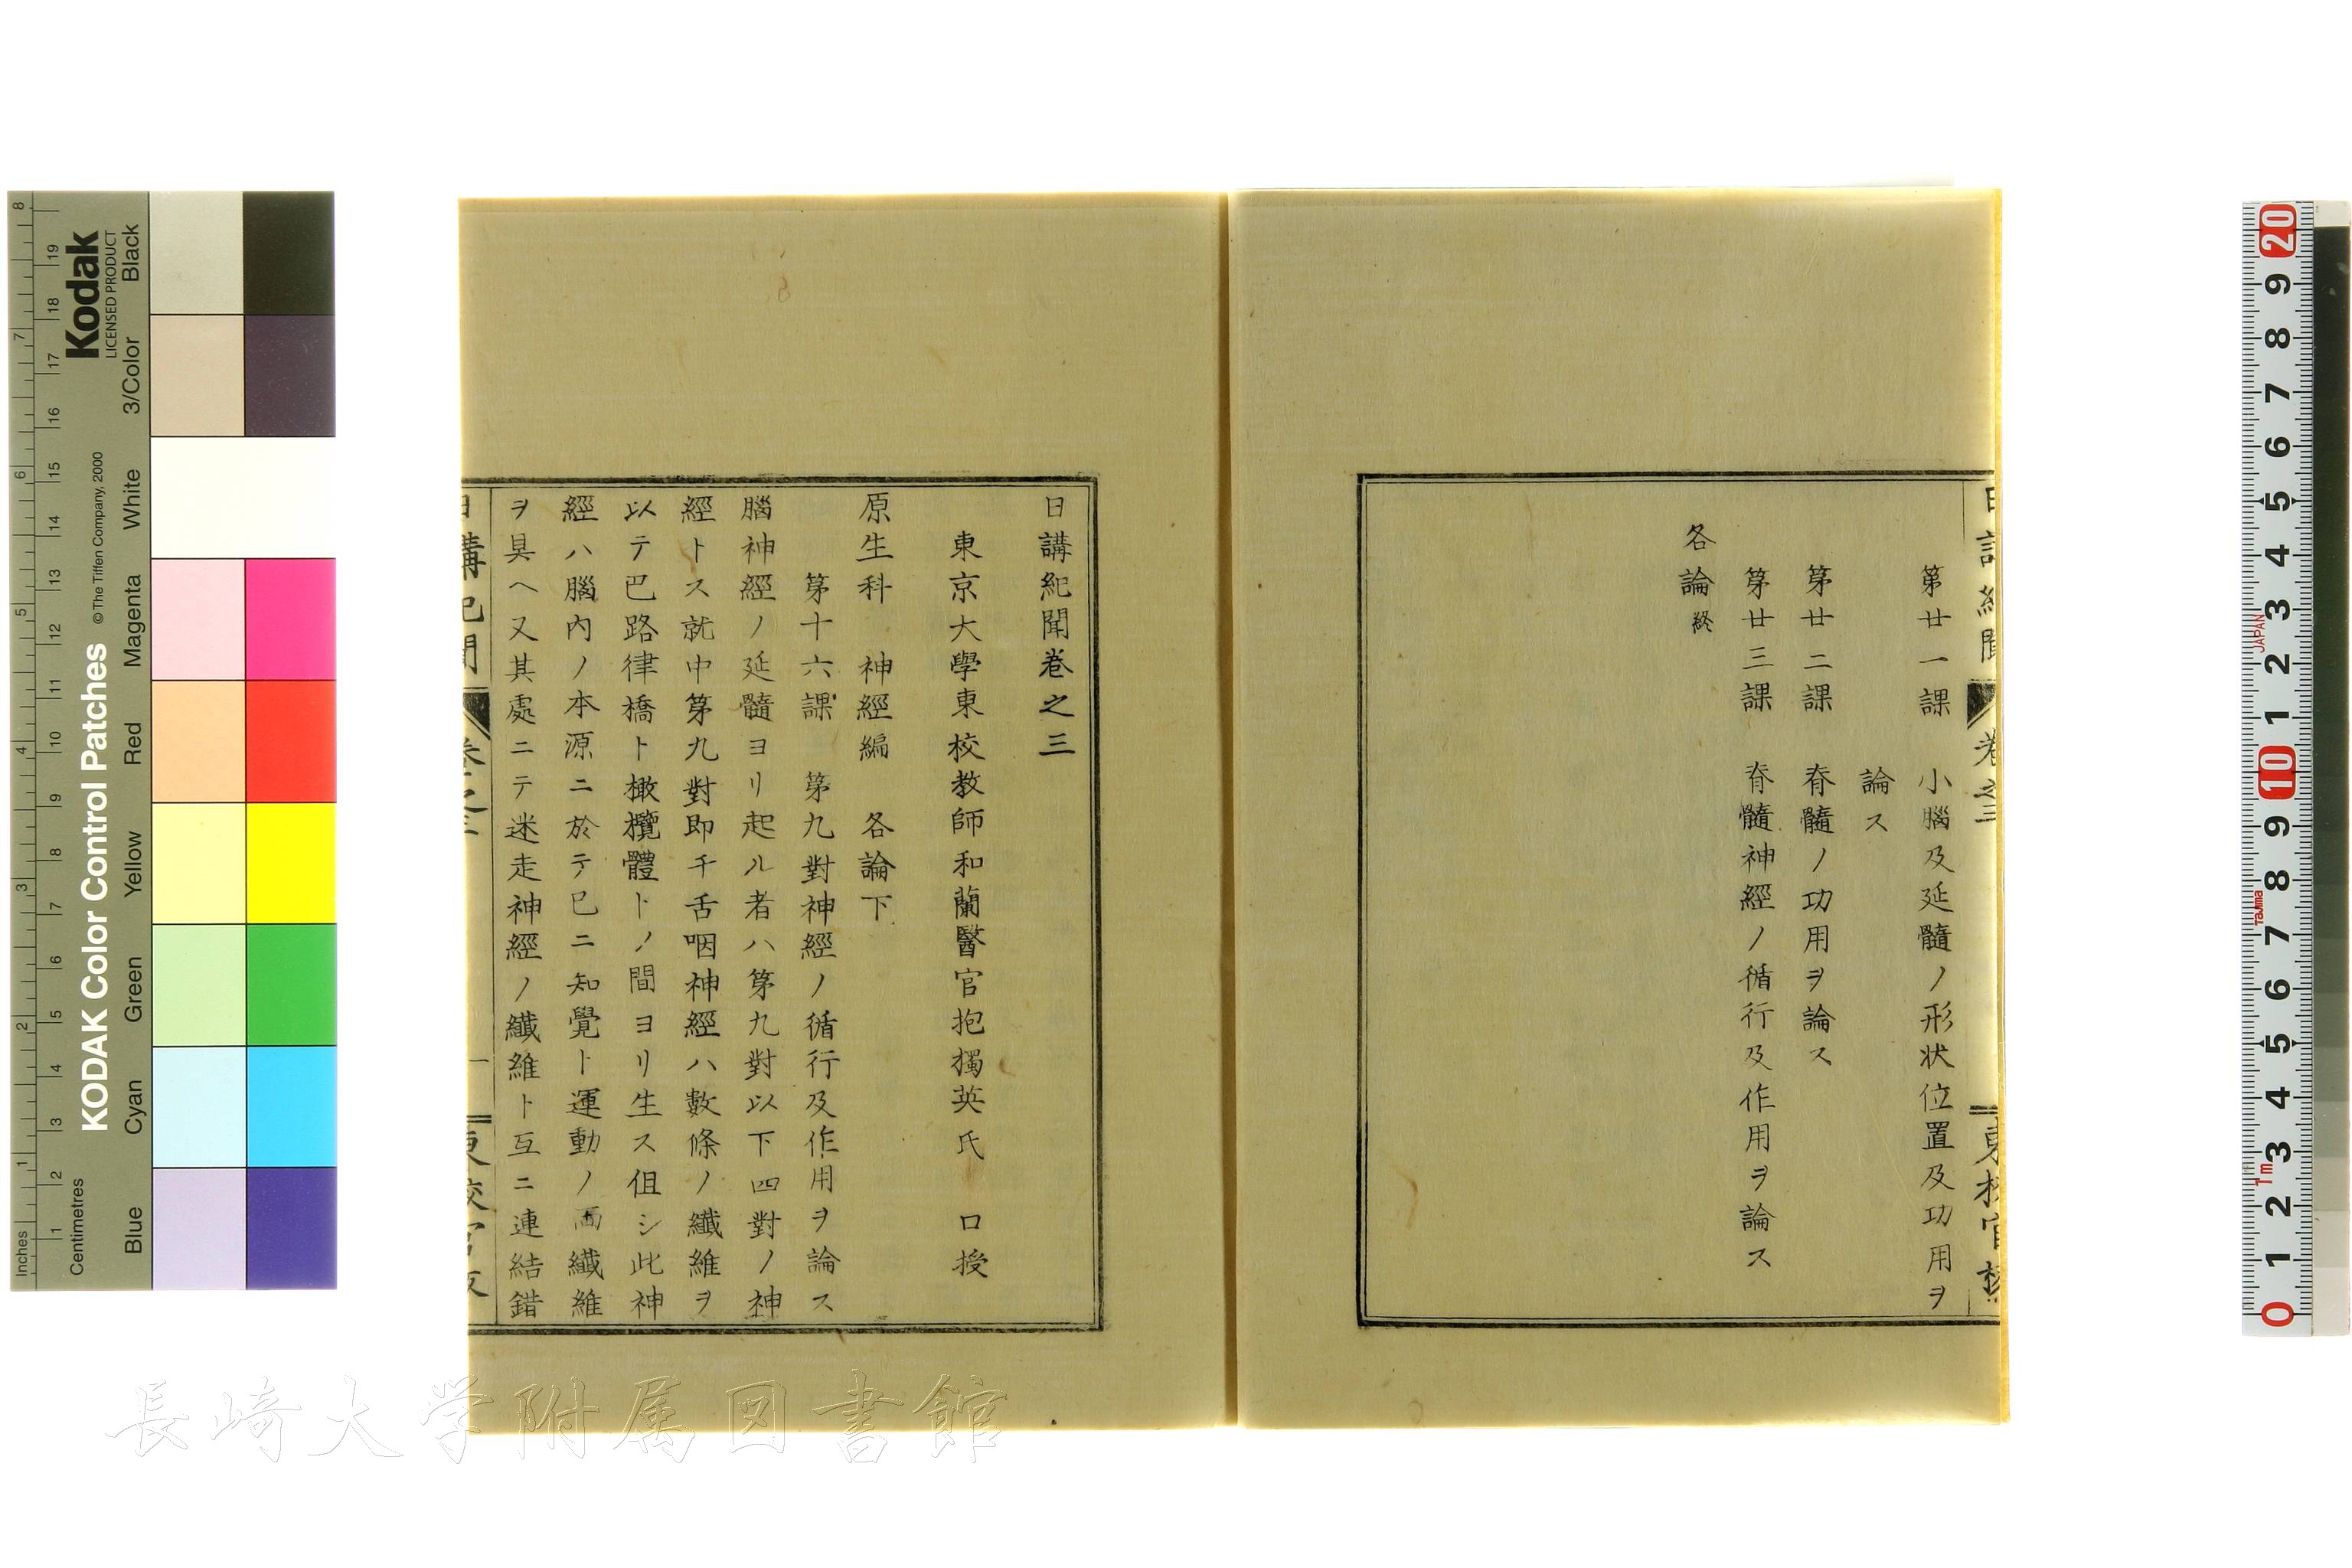 第廿一課 小腦及延髓ノ形狀位置及功用ヲ
論ス
第廿二課 脊髓ノ功用ヲ論ス
第廿三課 脊髓神經ノ循行及作用ヲ論ス
各論終
日講紀聞卷之三
東京大學東校教師和蘭醫官抱獨英氏 口授
原生科 神經編 各論下
第十六課 第九對神經ノ循行及作用ヲ論ス
腦神經ノ延髓ヨリ起ル者ハ第九對以下四對ノ神
經トス就中第九對即チ舌咽神經ハ數條ノ纖維ヲ
以テ巴路律橋ト橄欖體トノ間ヨリ生ス伹シ此神
經ハ腦內ノ本源ニ於テ已ニ知覺ト運動ノ兩纖維
ヲ具ヘ又其處ニテ迷走神經ノ纖維ト互ニ連結錯
Inches
Centimetres
KODAK Color Control Patches
© The Tiffen Company, 2000
Kodak
LICENSED PRODUCT
Blue
Cyan
Green
Yellow
Red
Magenta
White
3/Color
Black
8
7
6
5
4
3
2
1
19
18
17
16
15
14
13
12
11
10
9
8
7
6
5
4
3
2
1
20
9
8
7
6
5
4
3
2
1
10
9
8
7
6
5
4
3
2
1
0
JAPAN
Tajima
1m
長崎大学附属図書館